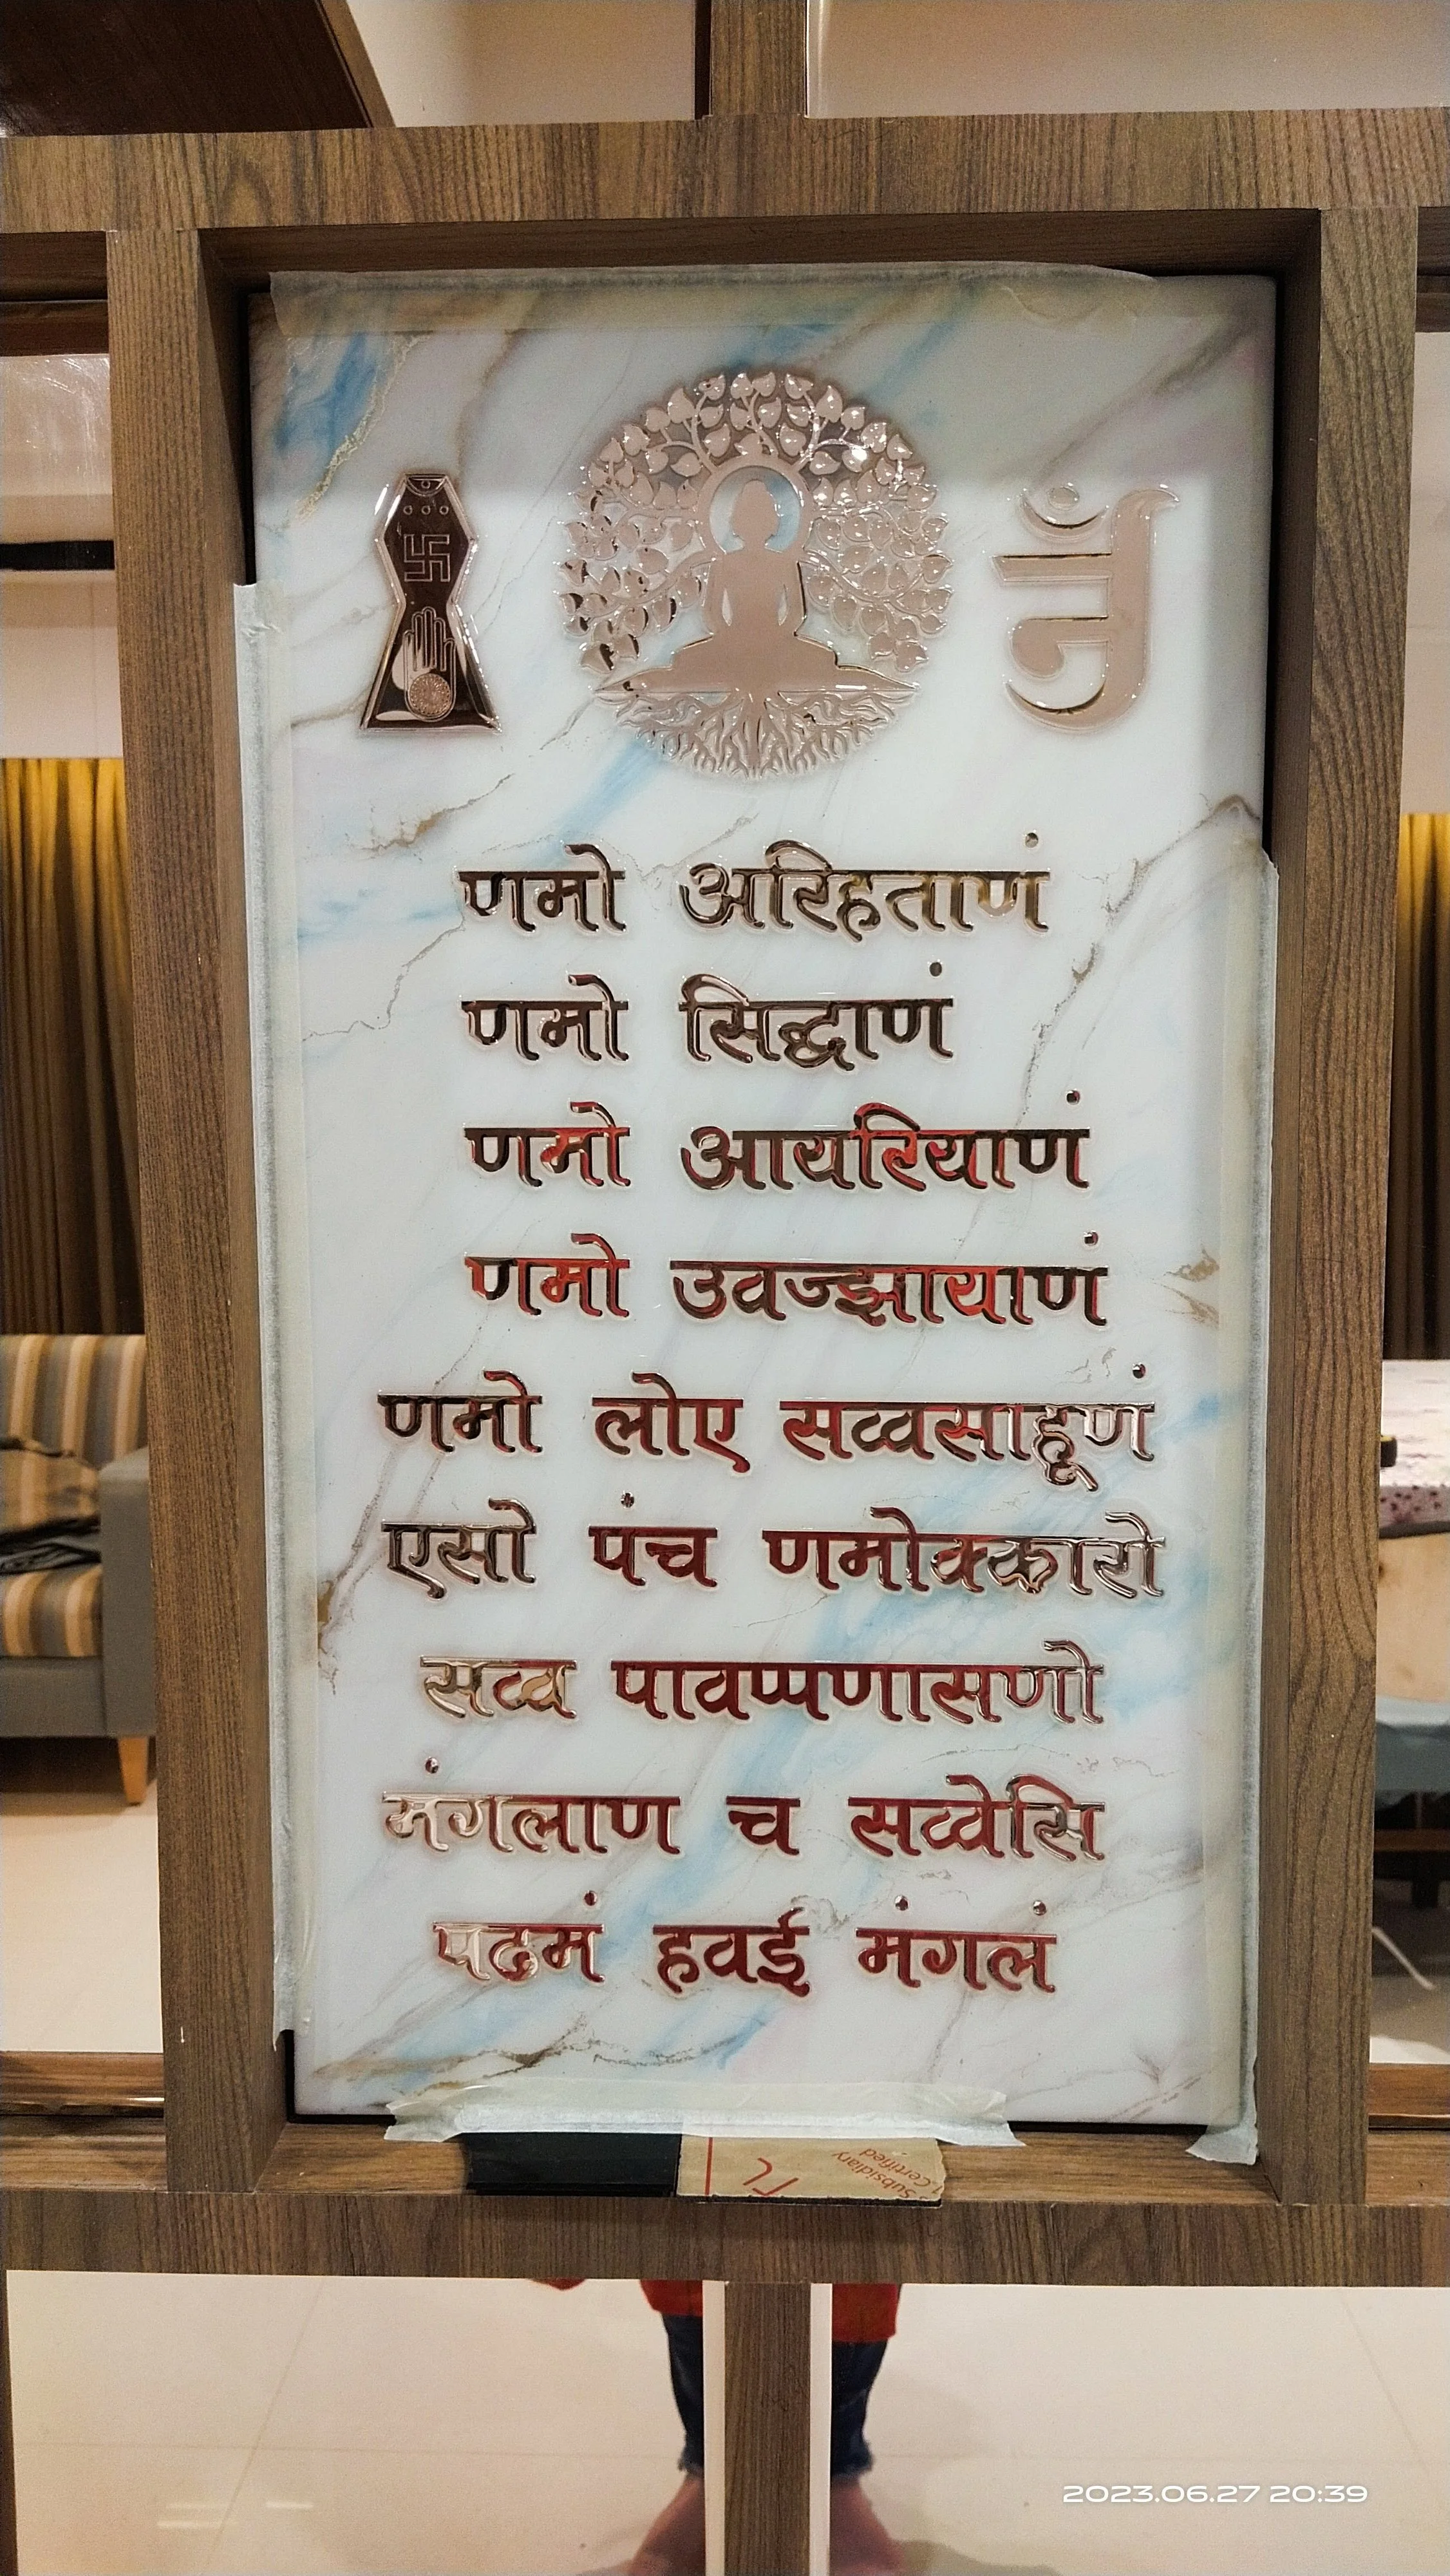 णमो अरिहताणं
णमो सिद्धाणं
णमो आयरियाणं
णमो उवज्झायाणं
णमो लोए सव्वसाहूणं
एसो पंच णमोक्कारो
सव्व पावप्पणासणो
मंगलाण च सव्वेसि
पढमं हवई मंगलं
Subsidiary
Certified
2023.06.27 20:39